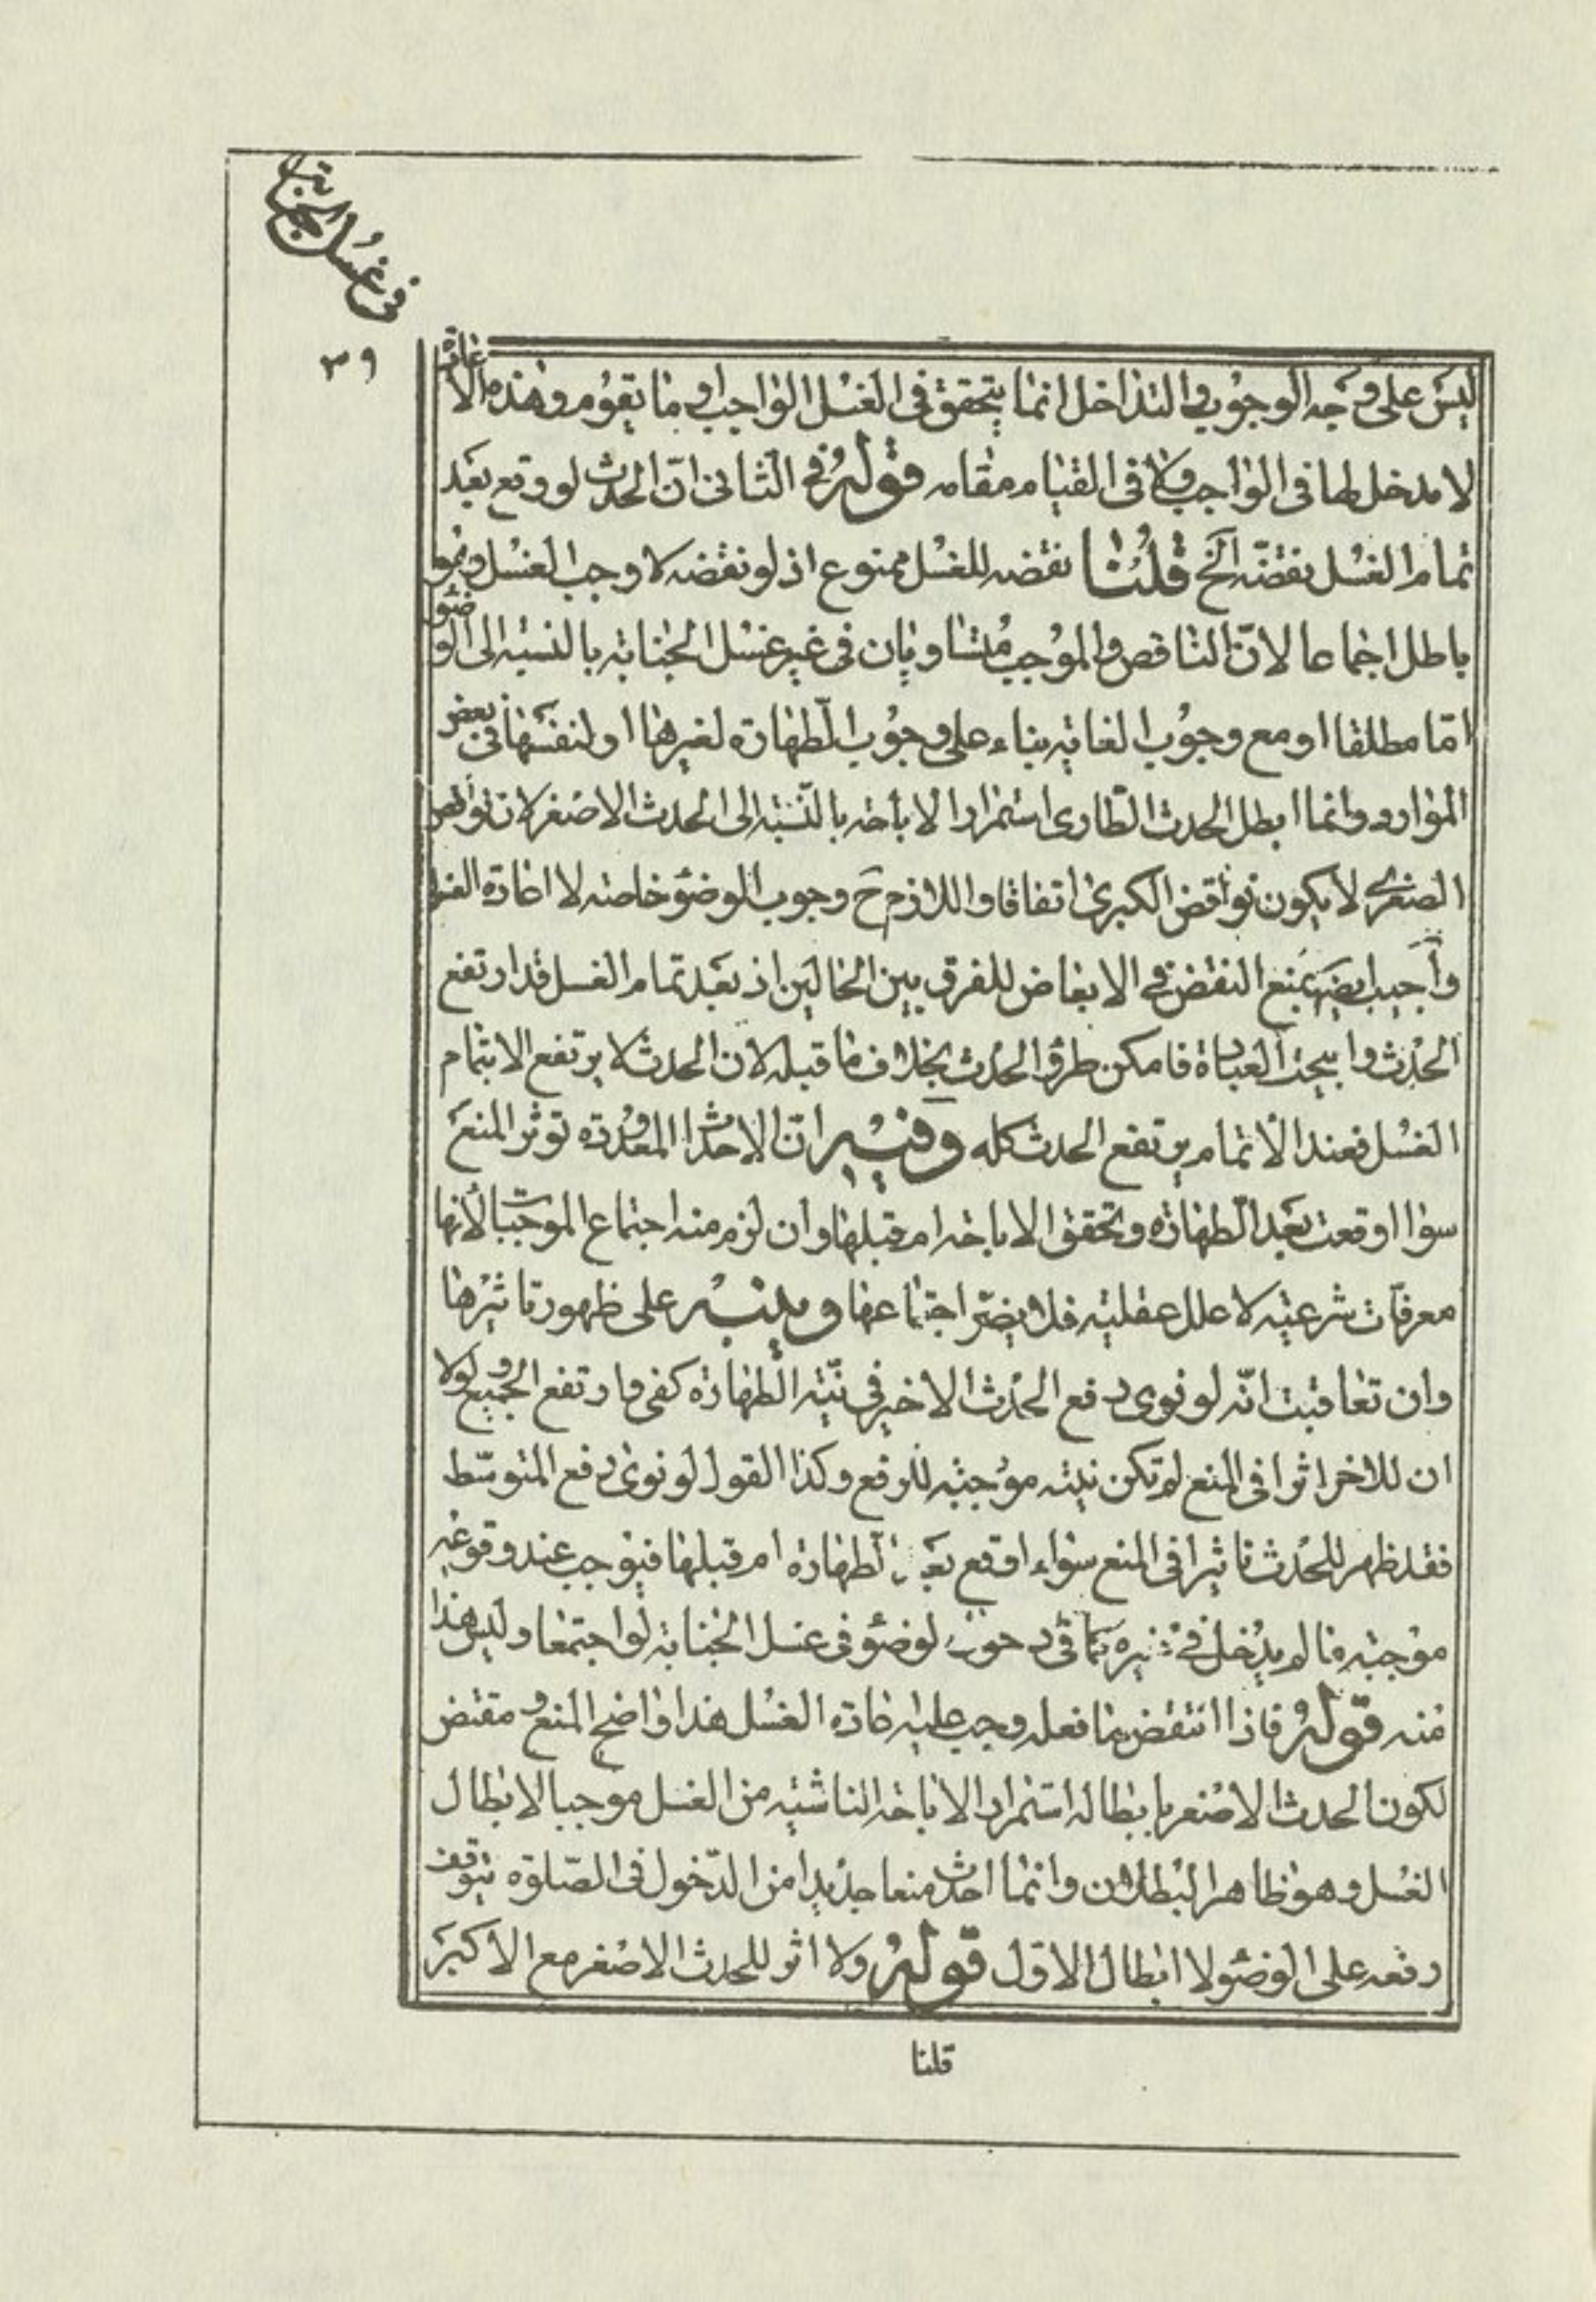 في غسل الجنابة
٣٩
ليس على وجه الوجوب والتداخل انما يتحقق في الغسل الواجب او ما يقوم وهذه الاعادة
لا مدخل لها في الواجب ولا في القيام مقامه قوله في الثاني ان الحدث لو وقع بعد
تمام الغسل نقضه الخ قلنا نقضه للغسل ممنوع اذ لو نقضه لاوجب الغسل وهو
باطل اجماعا لان الناقض والموجب متساويان في غير غسل الجنابة بالنسبة الى الوضوء
امّا مطلقا او مع وجوب الغاية بناء على وجوب الطهارة لغيرها او لنفسها في بعض
الموارد وانما ابطل الحدث الطارى استمرار الاباحة بالنسبة الى الحدث الاصغر لان نواقض
الصغرى لا يكون نواقض الكبرى اتفاقا واللازم ح وجوب الوضوء خاصة لا اعادة الغسل
وأجيب ايضا بمنع النقض في الابعاض للفرق بين الحالين اذ بعد تمام الغسل قد ارتفع
الحدث وابيحت العبادة فامكن طرو الحدث بخلاف ما قبله لان الحدث لا يرتفع الا بتمام
الغسل فعند الاتمام يرتفع الحدث كله وفيه ان الاحداث المعدودة توثر المنع
سواا اوقعت بعد الطهارة وتحقق الاباحة ام قبلها وان لزم منه اجتماع الموجبات لأنها
معرفات شرعية لا علل عقلية فلا يضر اجتماعها وينبه على ظهور تاثيرها
وان تعاقبت انه لو نوى رفع الحدث الاخير في نية الطهارة كفى وارتفع الجميع ولولا
ان للاخر اثرا في المنع لم تكن نيته موجبة للرفع وكذا القول لو نوى رفع المتوسط
فقد ظهر للحدث تاثيرا في المنع سواء اوقع بعد الطهارة ام قبلها فيوجب عند وقوعه
موجبه ما لم يدخل في غيره كما في دخول الوضوء في غسل الجنابة لو اجتمعا وليس هذا
منه قوله فاذا انتقض ما فعله وجب عليه اعادة الغسل هذا واضح المنع و مقتض
لكون الحدث الاصغر بابطاله استمرار الاباحة الناشئة من الغسل موجبا لابطال
الغسل وهو ظاهر البطلان وانما احدث منعا جديدا من الدخول في الصلوة يتوقف
رفعه على الوضوء لا ابطال الاول قوله ولا اثر للحدث الاصغر مع الاكبر
قلنا